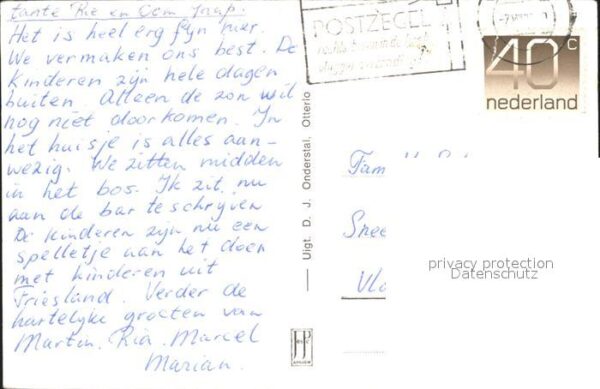 tante Rie en Oom Jaap.
Het is heel erg fijn hier.
We vermaken ons best. De
kinderen zijn hele dagen
buiten. Alleen de zon wil
nog niet doorkomen. In
het huisje is alles aan-
wezig. We zitten midden
in het bos. Ik zit nu
aan de bar te schrijven
De kinderen zijn nu een
spelletje aan het doen
met kinderen uit
Friesland. Verder de
hartelijke groeten van
Martin, Ria, Marcel
Marian.
POSTZEGEL
40 c
nederland
Uigt. D. J. Onderstal, Otterlo
Fam
Snee
Vl
privacy protection
Datenschutz